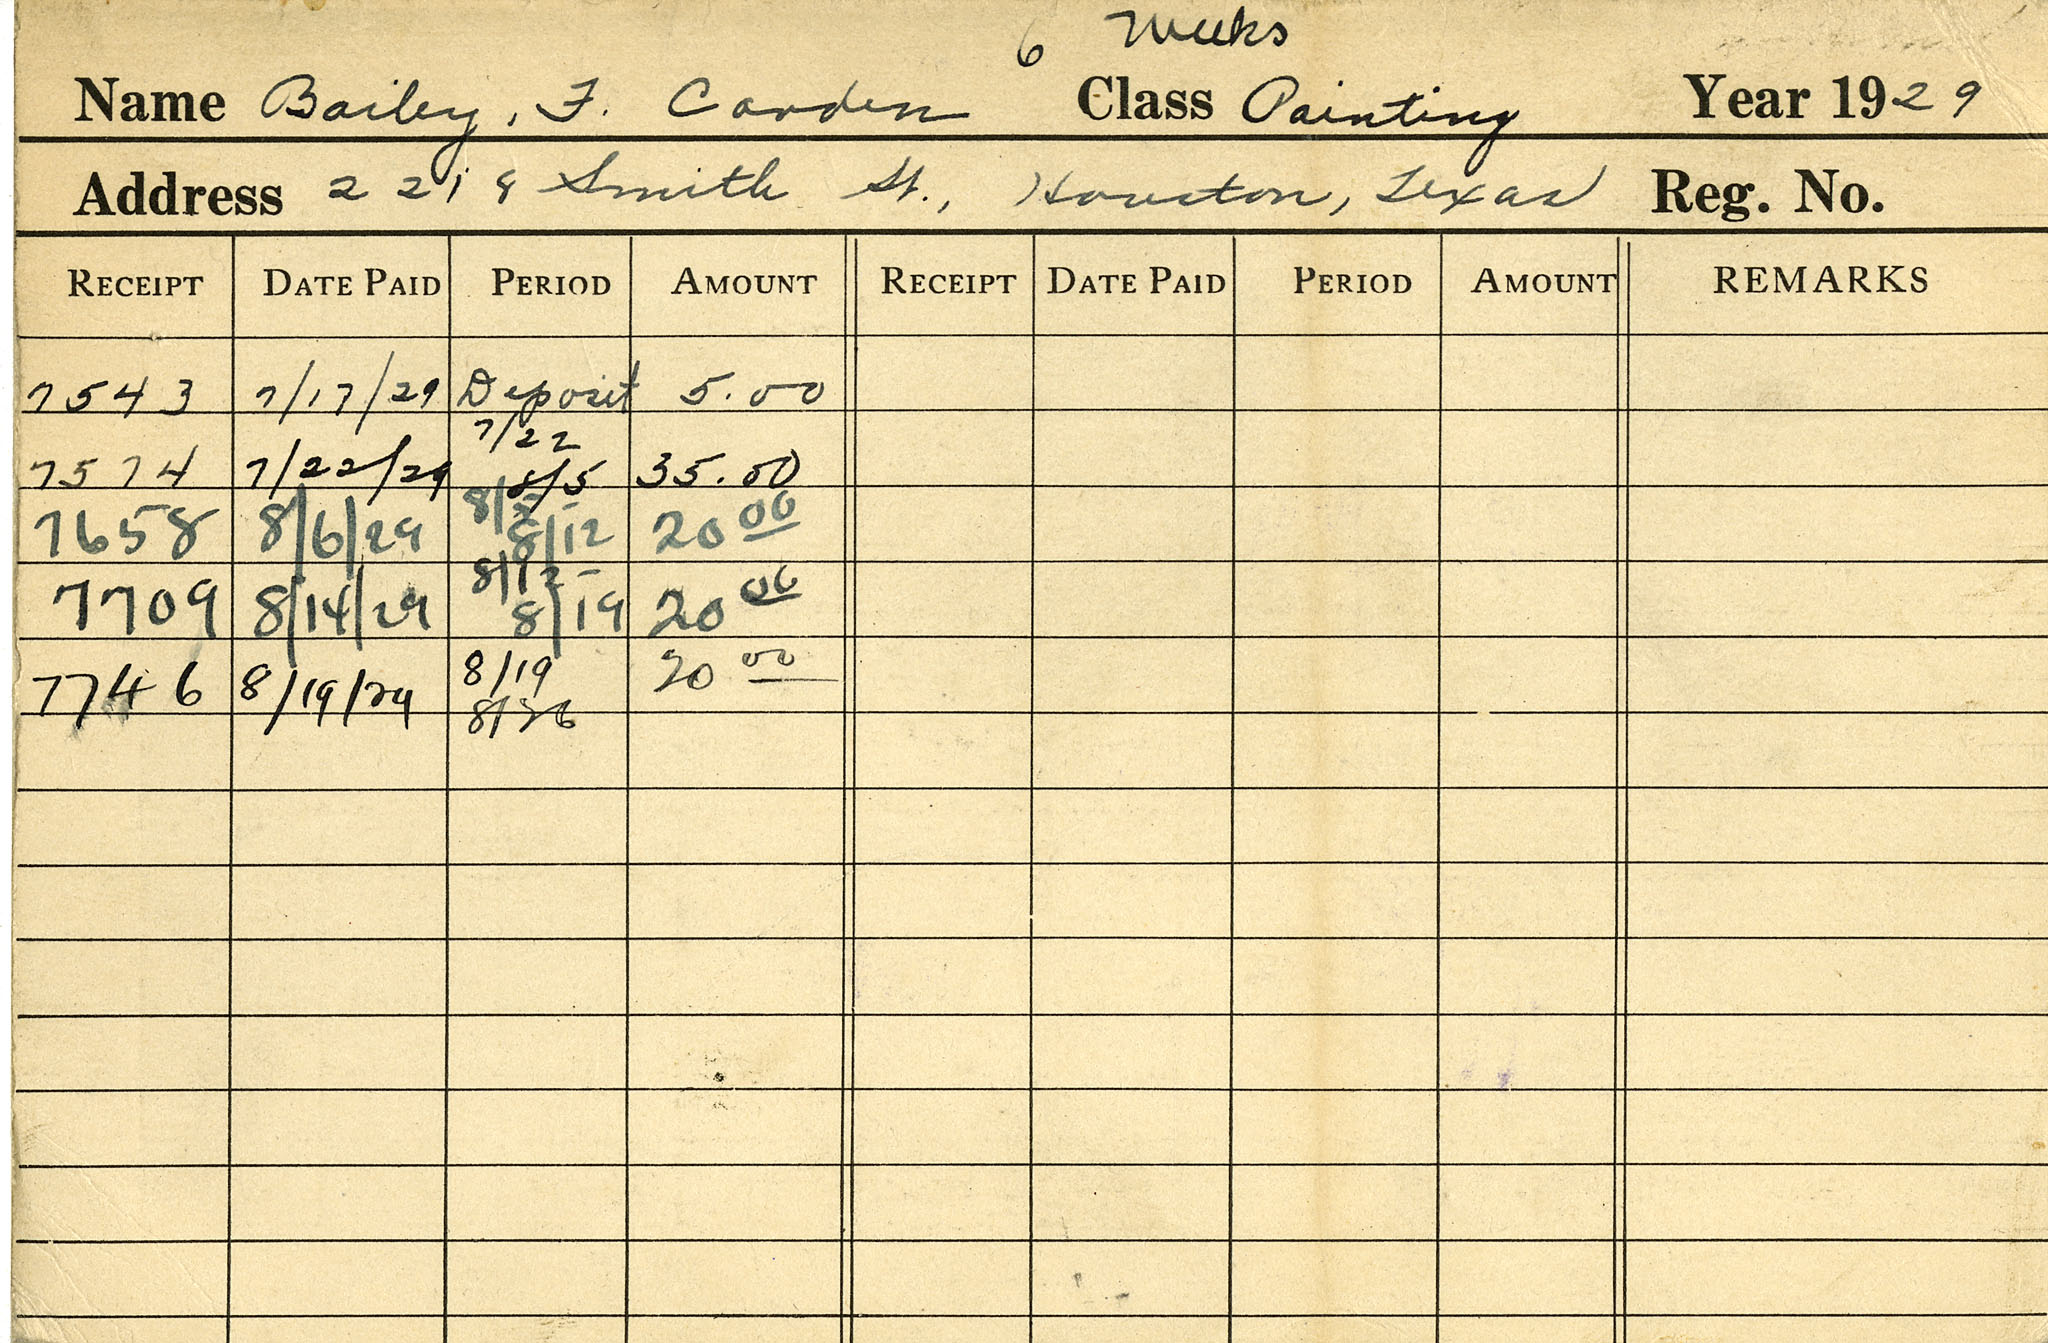 6 Weeks
Name Bailey, F. Carden Class Painting Year 1929
Address 2219 Smith St., Houston, Texas Reg. No.
RECEIPT DATE PAID PERIOD AMOUNT RECEIPT DATE PAID PERIOD AMOUNT REMARKS
7543 7/17/29 Deposit 5.00
7/22
7574 7/22/29 8/5 35.00
8/5-
7658 8/6/29 8/12 20 00
8/12-
7709 8/14/29 8/19 20 00
8/19
7746 8/19/29 20 00
8/26